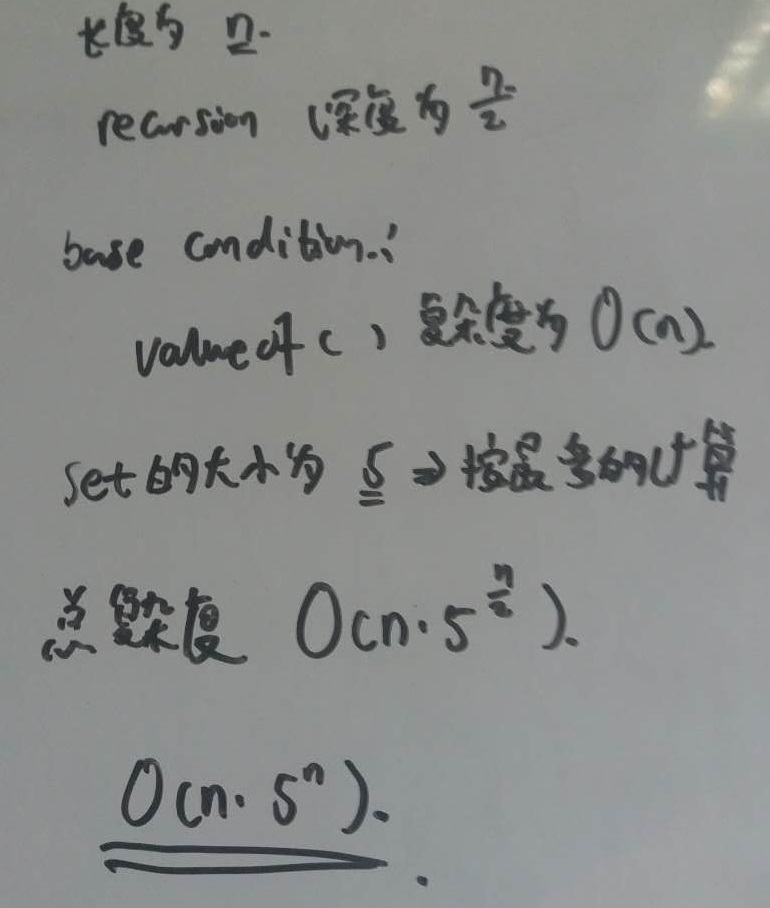 长度为 n.
recursion 深度为 n/2
base condition:
valueof() 复杂度为 O(n).
set的大小为 5 ⇒ 按最多的计算
总复杂度 O(n·5^(n/2)).
O(n·5^n).